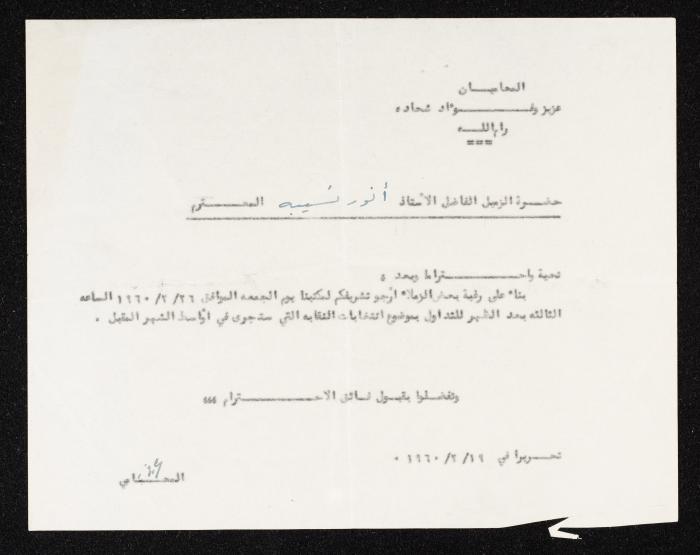 المحاميان
عزيز وفـــــؤاد شحاده
رام اللـــه
===
حضـرة الزميل الفاضل الأستاذ أنور نسيبه المحـــــترم
تحية واحـــــــتراما وبعد ،
بناء على رغبة بعض الزملاء أرجو تشريفكم لمكتبنا يوم الجمعه الموافق ٢٦/ ٢/ ١٩٦٠ الساعه
الثالثه بعد الظهر للتداول بموضوع انتخابات النقابه التي ستجرى في أواسط الشهر المقبل .
وتفضلوا بقبول فـائق الاحـــــــترام ،،،
تحـــريرا في ١٩/ ٢/ ١٩٦٠ .
المحـــامي